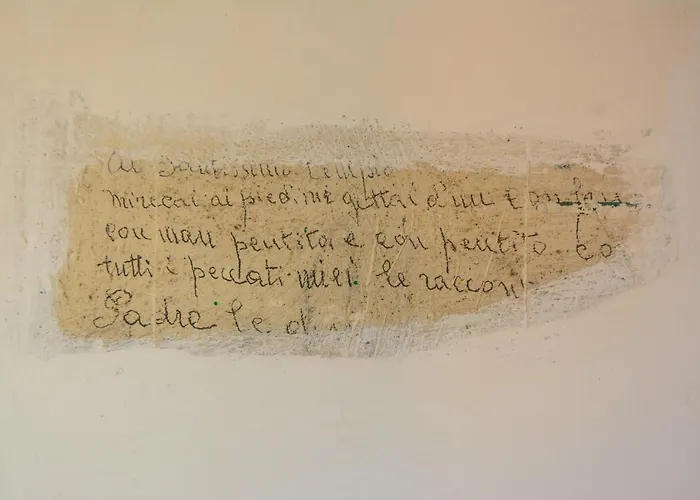 Al Santissimo tempio
mirecai ai piedi mi gettai d'un
con man pentita e con pentito co
tutti i peccati miei le raccon
Padre le d